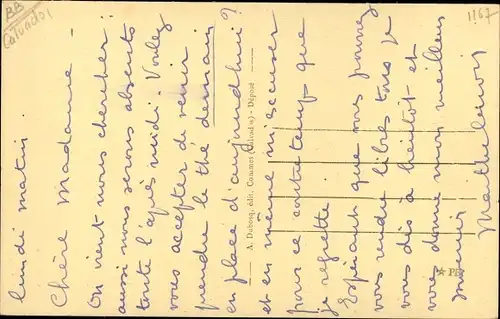 BB
Calvados
1167
lundi matin.
Chère Madame -
On vient nous chercher :
aussi nous serons absents
toute l'après midi. Voulez
vous accepter de venir
prendre le thé demain
en place d'aujourd'hui ?
A. Dubosq, édit., Commes (Calvados) - Déposé
et en même m'excuser
pour ce contre temps que
je regrette.
Espérant que vous pourrez
vous rendre libres tous je
vous dis à bientôt et
vous donne mon meilleur
souvenir